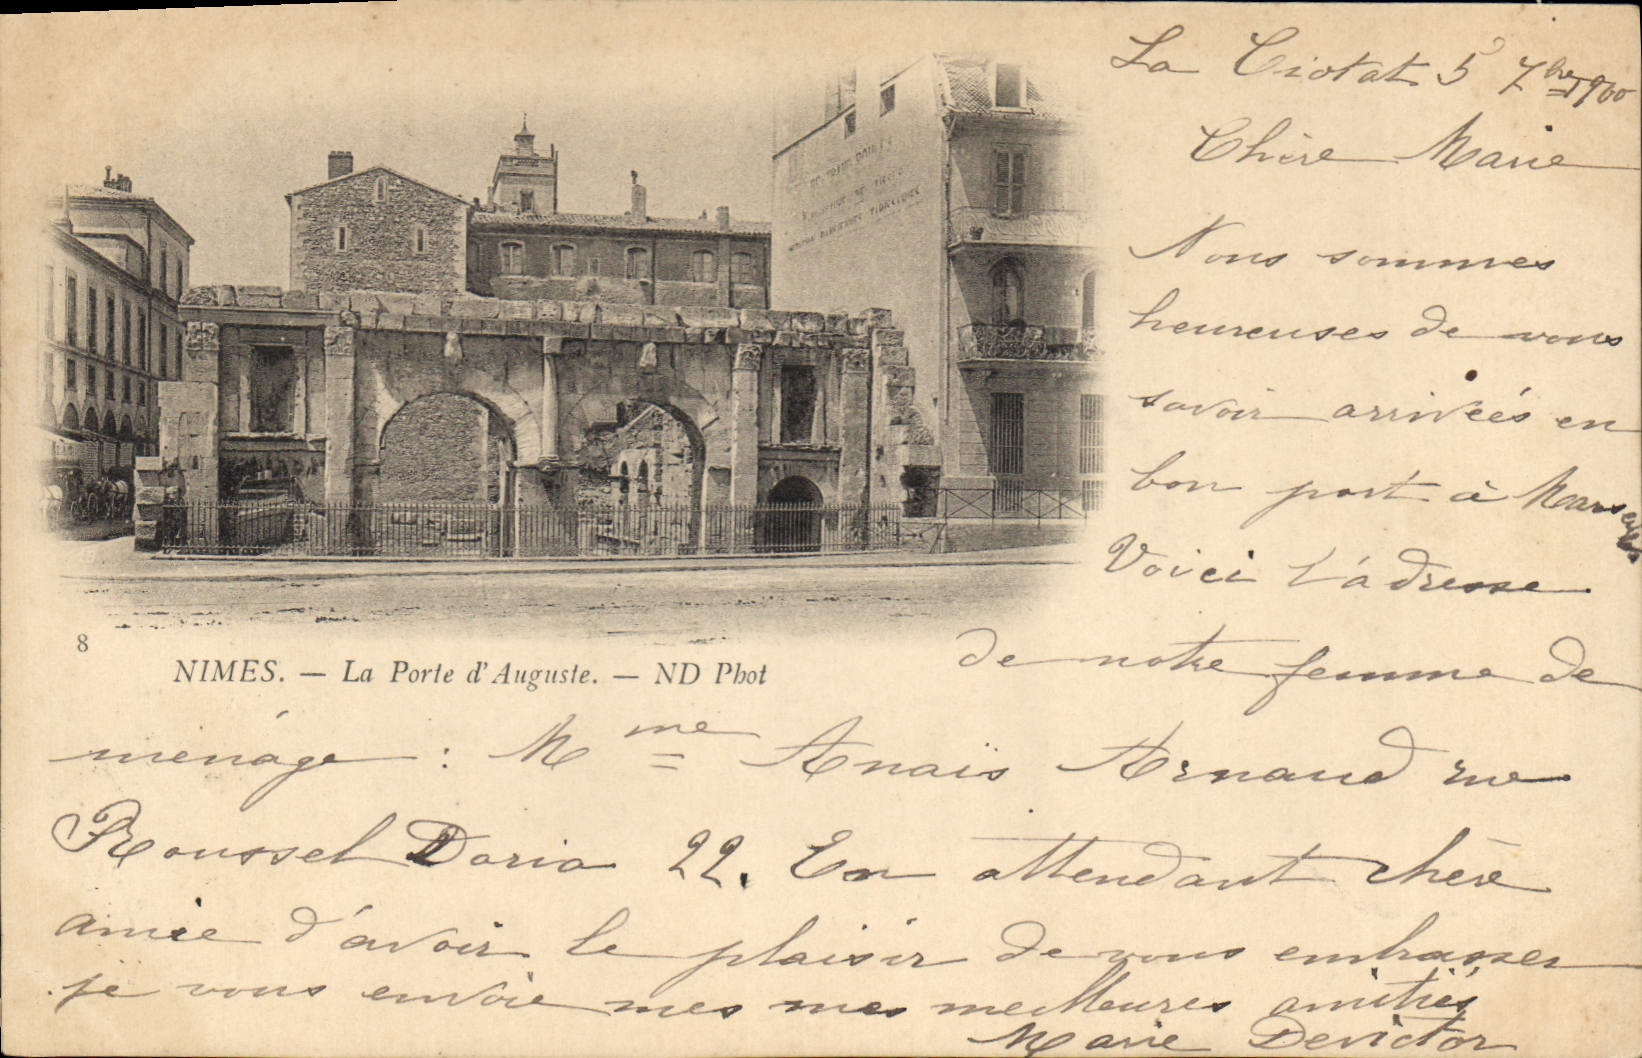 La Ciotat 5 7bre 1900
Chère Marie
Nous sommes
heureuses de vous
savoir arrivées en
bon port à Marseille
Voici l'adresse
de notre femme de
ménage : Mme Anaïs Arnaud rue
Roussel Doria 22. En attendant chère
amie d'avoir le plaisir de vous embrasser
je vous envoie mes mes meilleures amitiés
Marie Devictor
8
NIMES. — La Porte d'Auguste. — ND Phot